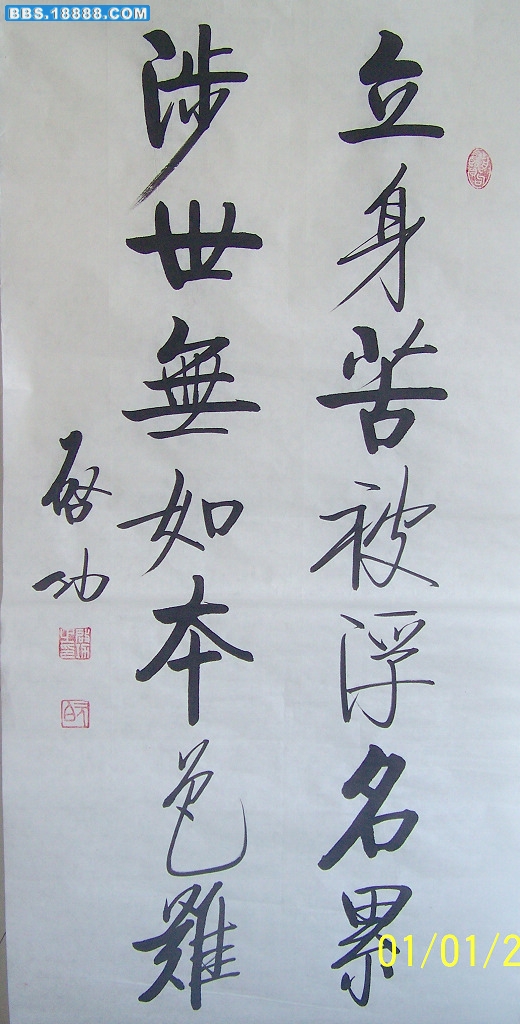 BBS.18888.COM
立身苦被浮名累
涉世無如本色難
啓功
01/01/2